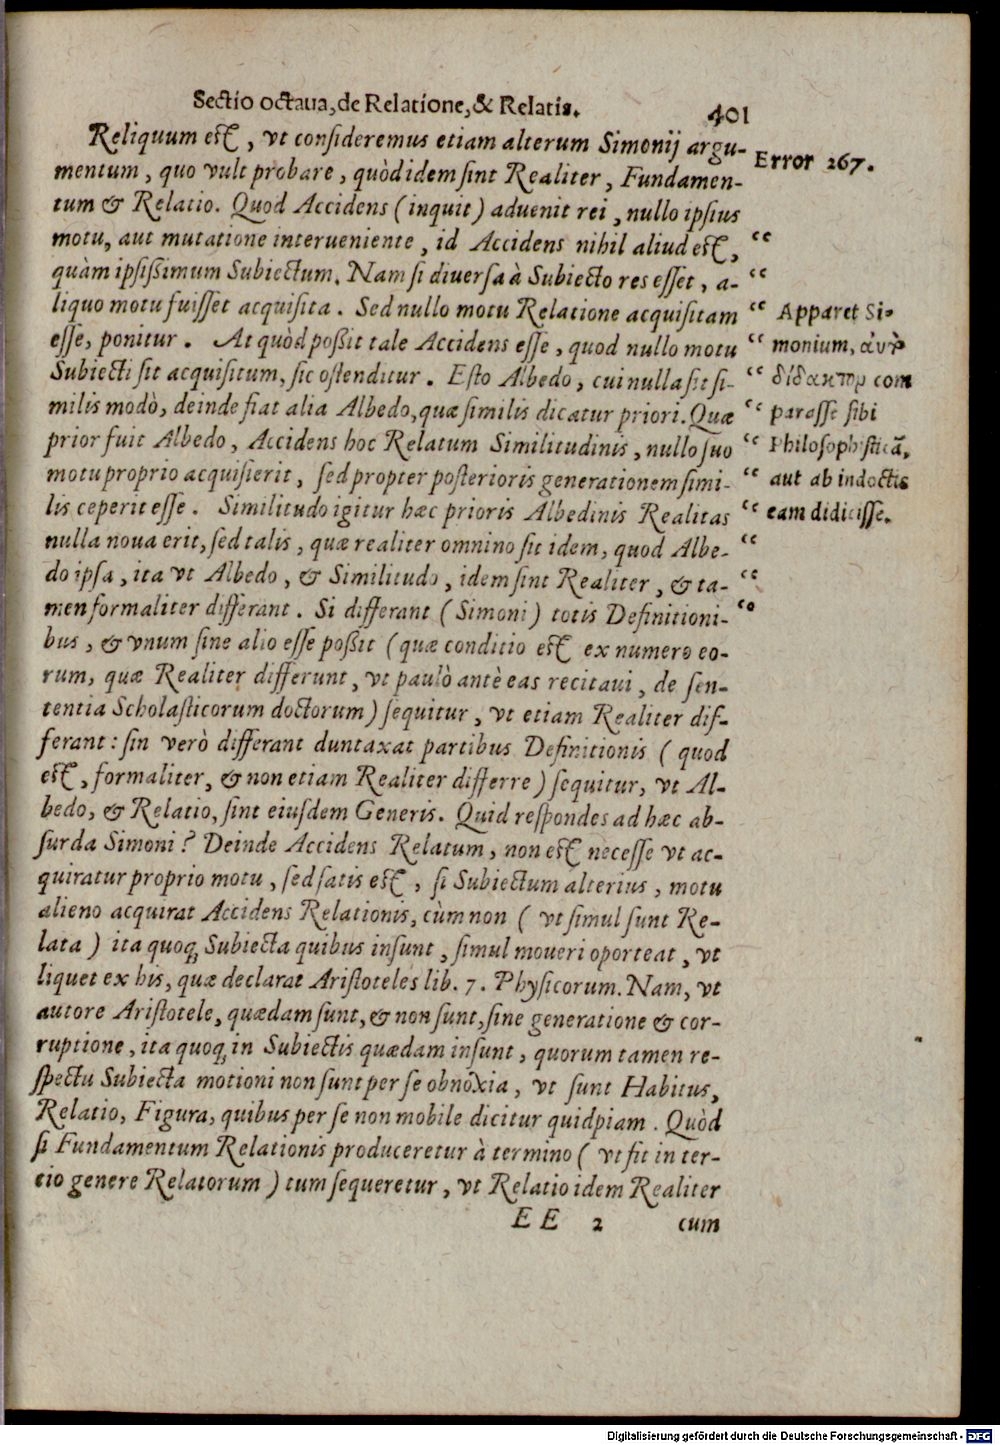 Sectio octaua, de Relatione, & Relatis. 401
Reliquum est, vt consideremus etiam alterum Simonij argu-
mentum, quo vult probare, quòd idem sint Realiter, Fundamen-
tum & Relatio. Quod Accidens (inquit) aduenit rei, nullo ipsius
motu, aut mutatione interueniente, id Accidens nihil aliud est,
quàm ipsissimum Subiectum. Nam si diuersa à Subiecto res esset, a-
liquo motu fuisset acquisita. Sed nullo motu Relatione acquisitam
esse, ponitur. At quòd possit tale Accidens esse, quod nullo motu
Subiecti sit acquisitum, sic ostenditur. Esto Albedo, cui nulla sit si-
milis modò, deinde fiat alia Albedo, quæ similis dicatur priori. Quæ
prior fuit Albedo, Accidens hoc Relatum Similitudinis, nullo suo
motu proprio acquisierit, sed propter posterioris generationem simi-
lis ceperit esse. Similitudo igitur hæc prioris Albedinis Realitas
nulla noua erit, sed talis, quæ realiter omnino sit idem, quod Albe-
do ipsa, ita vt Albedo, & Similitudo, idem sint Realiter, & ta-
men formaliter differant. Si differant (Simoni) totis Definitioni-
bus, & vnum sine alio esse possit (quæ conditio est ex numero eo-
rum, quæ Realiter differunt, vt paulò antè eas recitaui, de sen-
tentia Scholasticorum doctorum) sequitur, vt etiam Realiter dif-
ferant: sin verò differant duntaxat partibus Definitionis (quod
est, formaliter, & non etiam Realiter differre) sequitur, vt Al-
bedo, & Relatio, sint eiusdem Generis. Quid respondes ad hæc ab-
surda Simoni? Deinde Accidens Relatum, non est necesse vt ac-
quiratur proprio motu, sed satis est, si Subiectum alterius, motu
alieno acquirat Accidens Relationis, cùm non (vt simul sunt Re-
lata) ita quoq; Subiecta quibus insunt, simul moueri oporteat, vt
liquet ex his, quæ declarat Aristoteles lib. 7. Physicorum. Nam, vt
autore Aristotele, quædam sunt, & non sunt, sine generatione & cor-
ruptione, ita quoq; in Subiectis quædam insunt, quorum tamen re-
spectu Subiecta motioni non sunt per se obnoxia, vt sunt Habitus,
Relatio, Figura, quibus per se non mobile dicitur quidpiam. Quòd
si Fundamentum Relationis produceretur à termino (vt fit in ter-
tio genere Relatorum) tum sequeretur, vt Relatio idem Realiter
EE 2 cum
Error 267.
“
“
“ Apparet Si-
“ monium,
“ com
“ parasse sibi
“ Philosophisticã,
“ aut ab indoctis
“ eam didicisse.
“
“
“